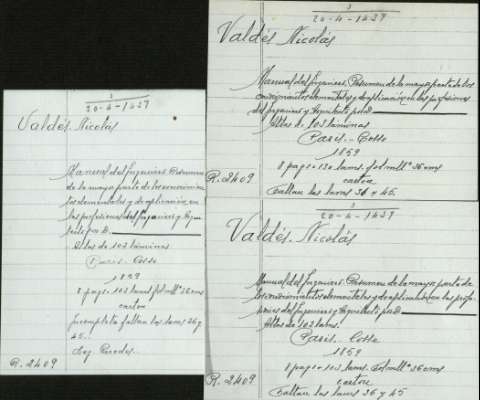 3
20-4-1437
Valdés. Nicolas
Manual del Ingeniero. Resumen
de la mayor parte de los conocimien
tos elementales y de aplicación en
las profesiones del Ingeniero y Arqui
tecto por D.
Atlas de 103 láminas.
Paris - Cosse
1859
8 pags - 103 lams. fol. mllª 36 cms
carton
Incompleto faltan las lams 36 y
45.
Leg. Paredes.
R. 2409
3
20-4-1437
Valdés Nicolás
Manual del Ingeniero. Resumen de la mayor parte de los
conocimientos elementales y de aplicación en las profesiones
del Ingeniero y Arquitecto por D.
Atlas de 103 láminas
Paris.- Cosse
1859
8 pags - 103 lams. fol. mllª 36 cms
carton
R. 2409
Faltan las lams 36 y 45.
3
20-4-1437
Valdés. Nicolás
Manual del Ingeniero. Resumen de la mayor parte de
los conocimientos elementales y de aplicación en las profe
siones del Ingeniero y Arquitecto por D.
Atlas de 103 lams.
Paris.- Cosse
1859
8 pags - 103 lams. fol. mllª 36 cms
cartone
R. 2409
Faltan las lams 36 y 45